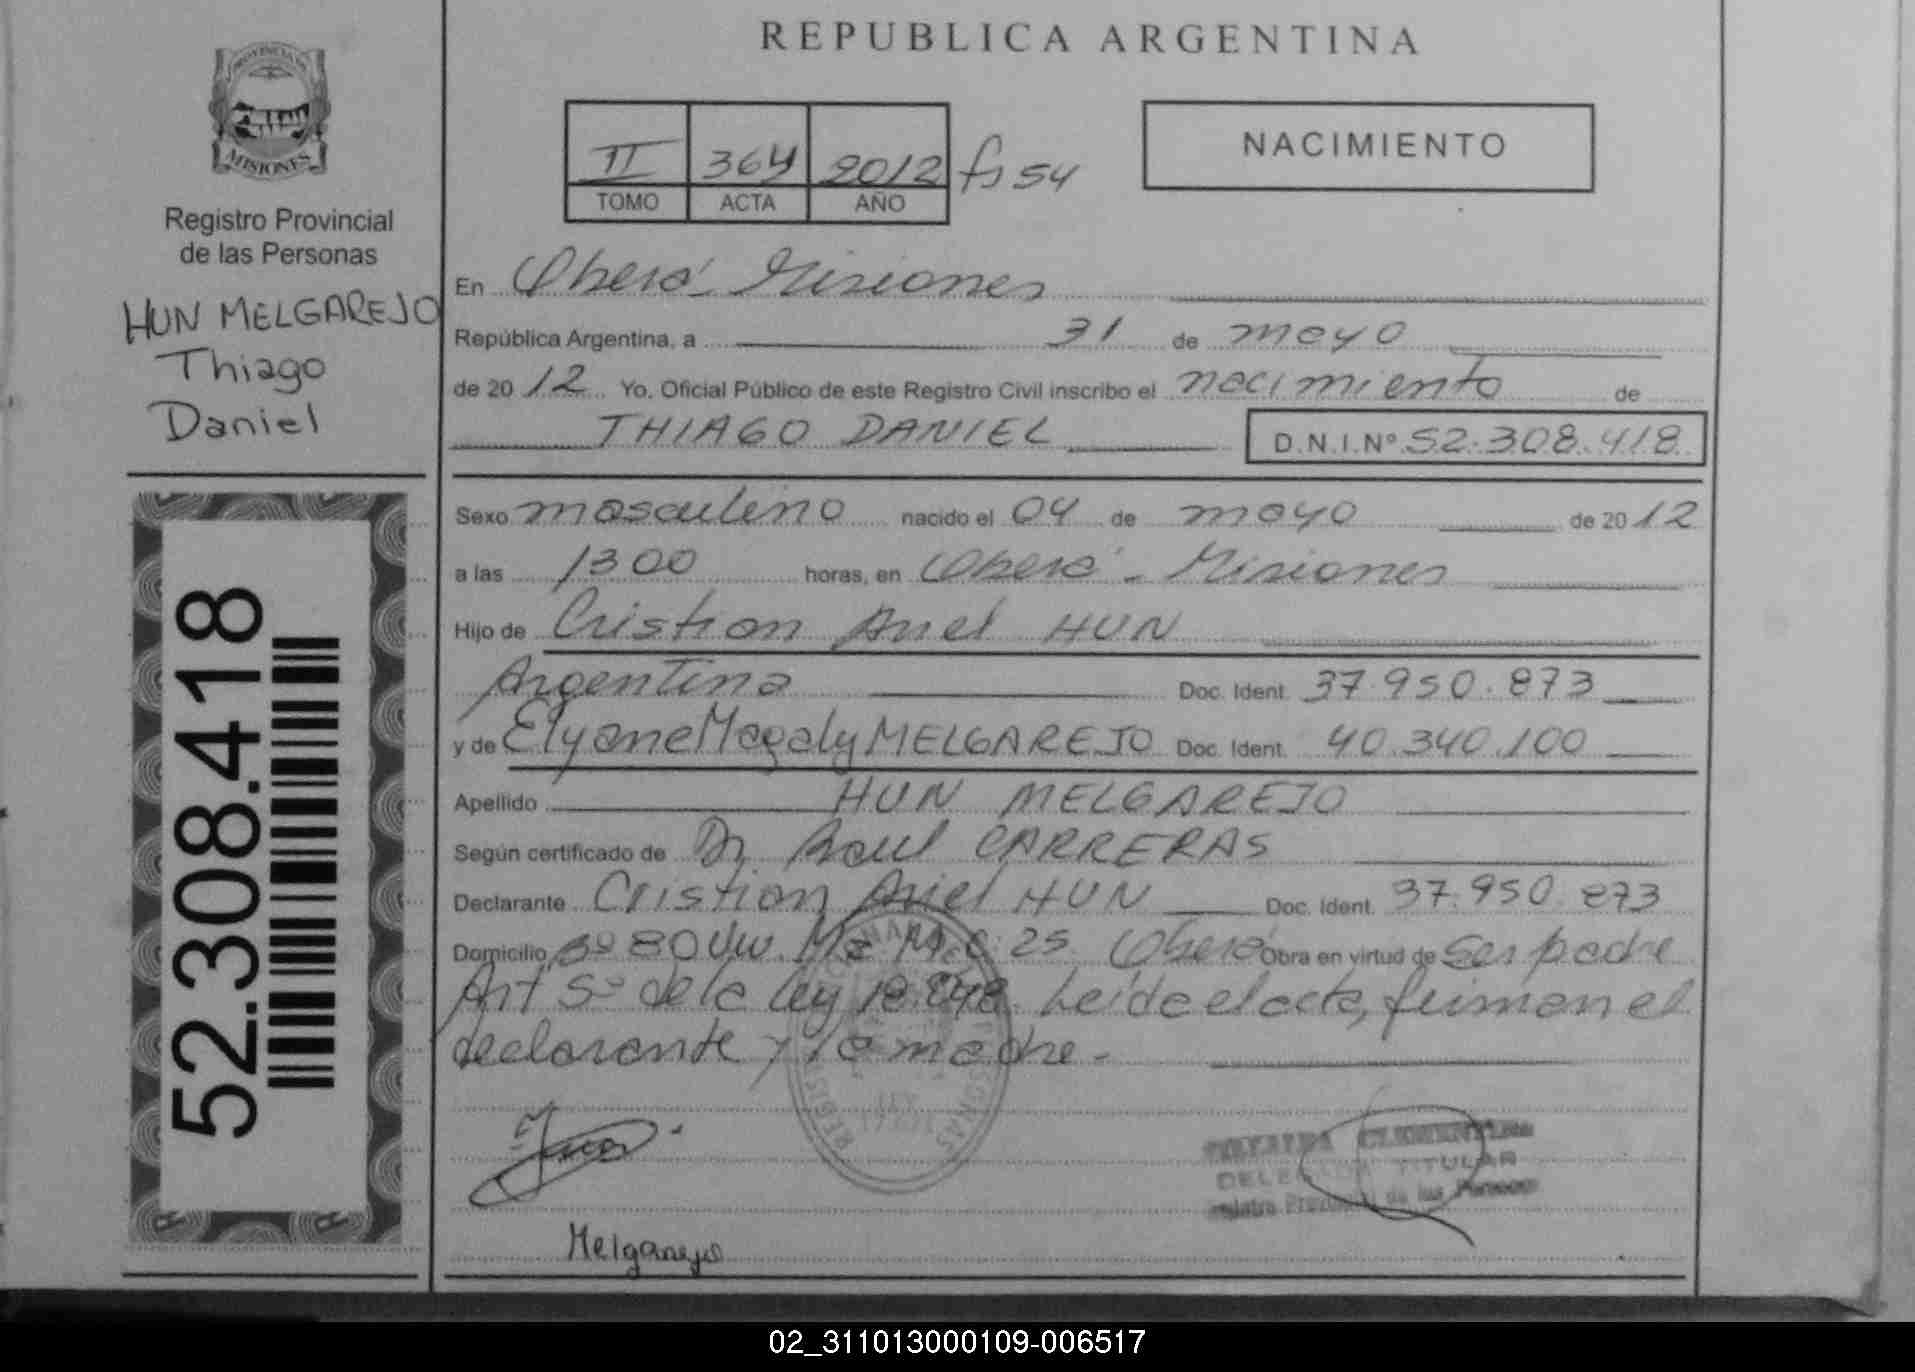 REPUBLICA ARGENTINA
PROVINCIA DE
MISIONES
Registro Provincial
de las Personas
HUN MELGAREJO
Thiago
Daniel
52.308.418
II 364 2012 fs 54
TOMO ACTA AÑO
NACIMIENTO
En Oberá - Misiones
República Argentina, a 31 de mayo
de 2012 Yo, Oficial Público de este Registro Civil inscribo el nacimiento de
THIAGO DANIEL D.N.I.Nº 52.308.418
Sexo masculino nacido el 04 de mayo de 2012
a las 1300 horas, en Oberá - Misiones
Hijo de Cristian Ariel HUN
Argentina Doc. Ident. 37.950.873
y de Elyane Magaly MELGAREJO Doc. Ident. 40.340.100
Apellido HUN MELGAREJO
Según certificado de Dr Raul CARRERAS
Declarante Cristian Ariel HUN Doc. Ident. 37.950.873
Domicilio Bº 80 Viv. Mz M C: 25 Oberá Obra en virtud de ser padre
Art 5º de la ley 18.248. Leída el acta, firman el
declarante y la madre.-
CLEMENTINA
DELEGADA TITULAR
Registro Provincial de las Personas
Melgarejo
02_311013000109-006517